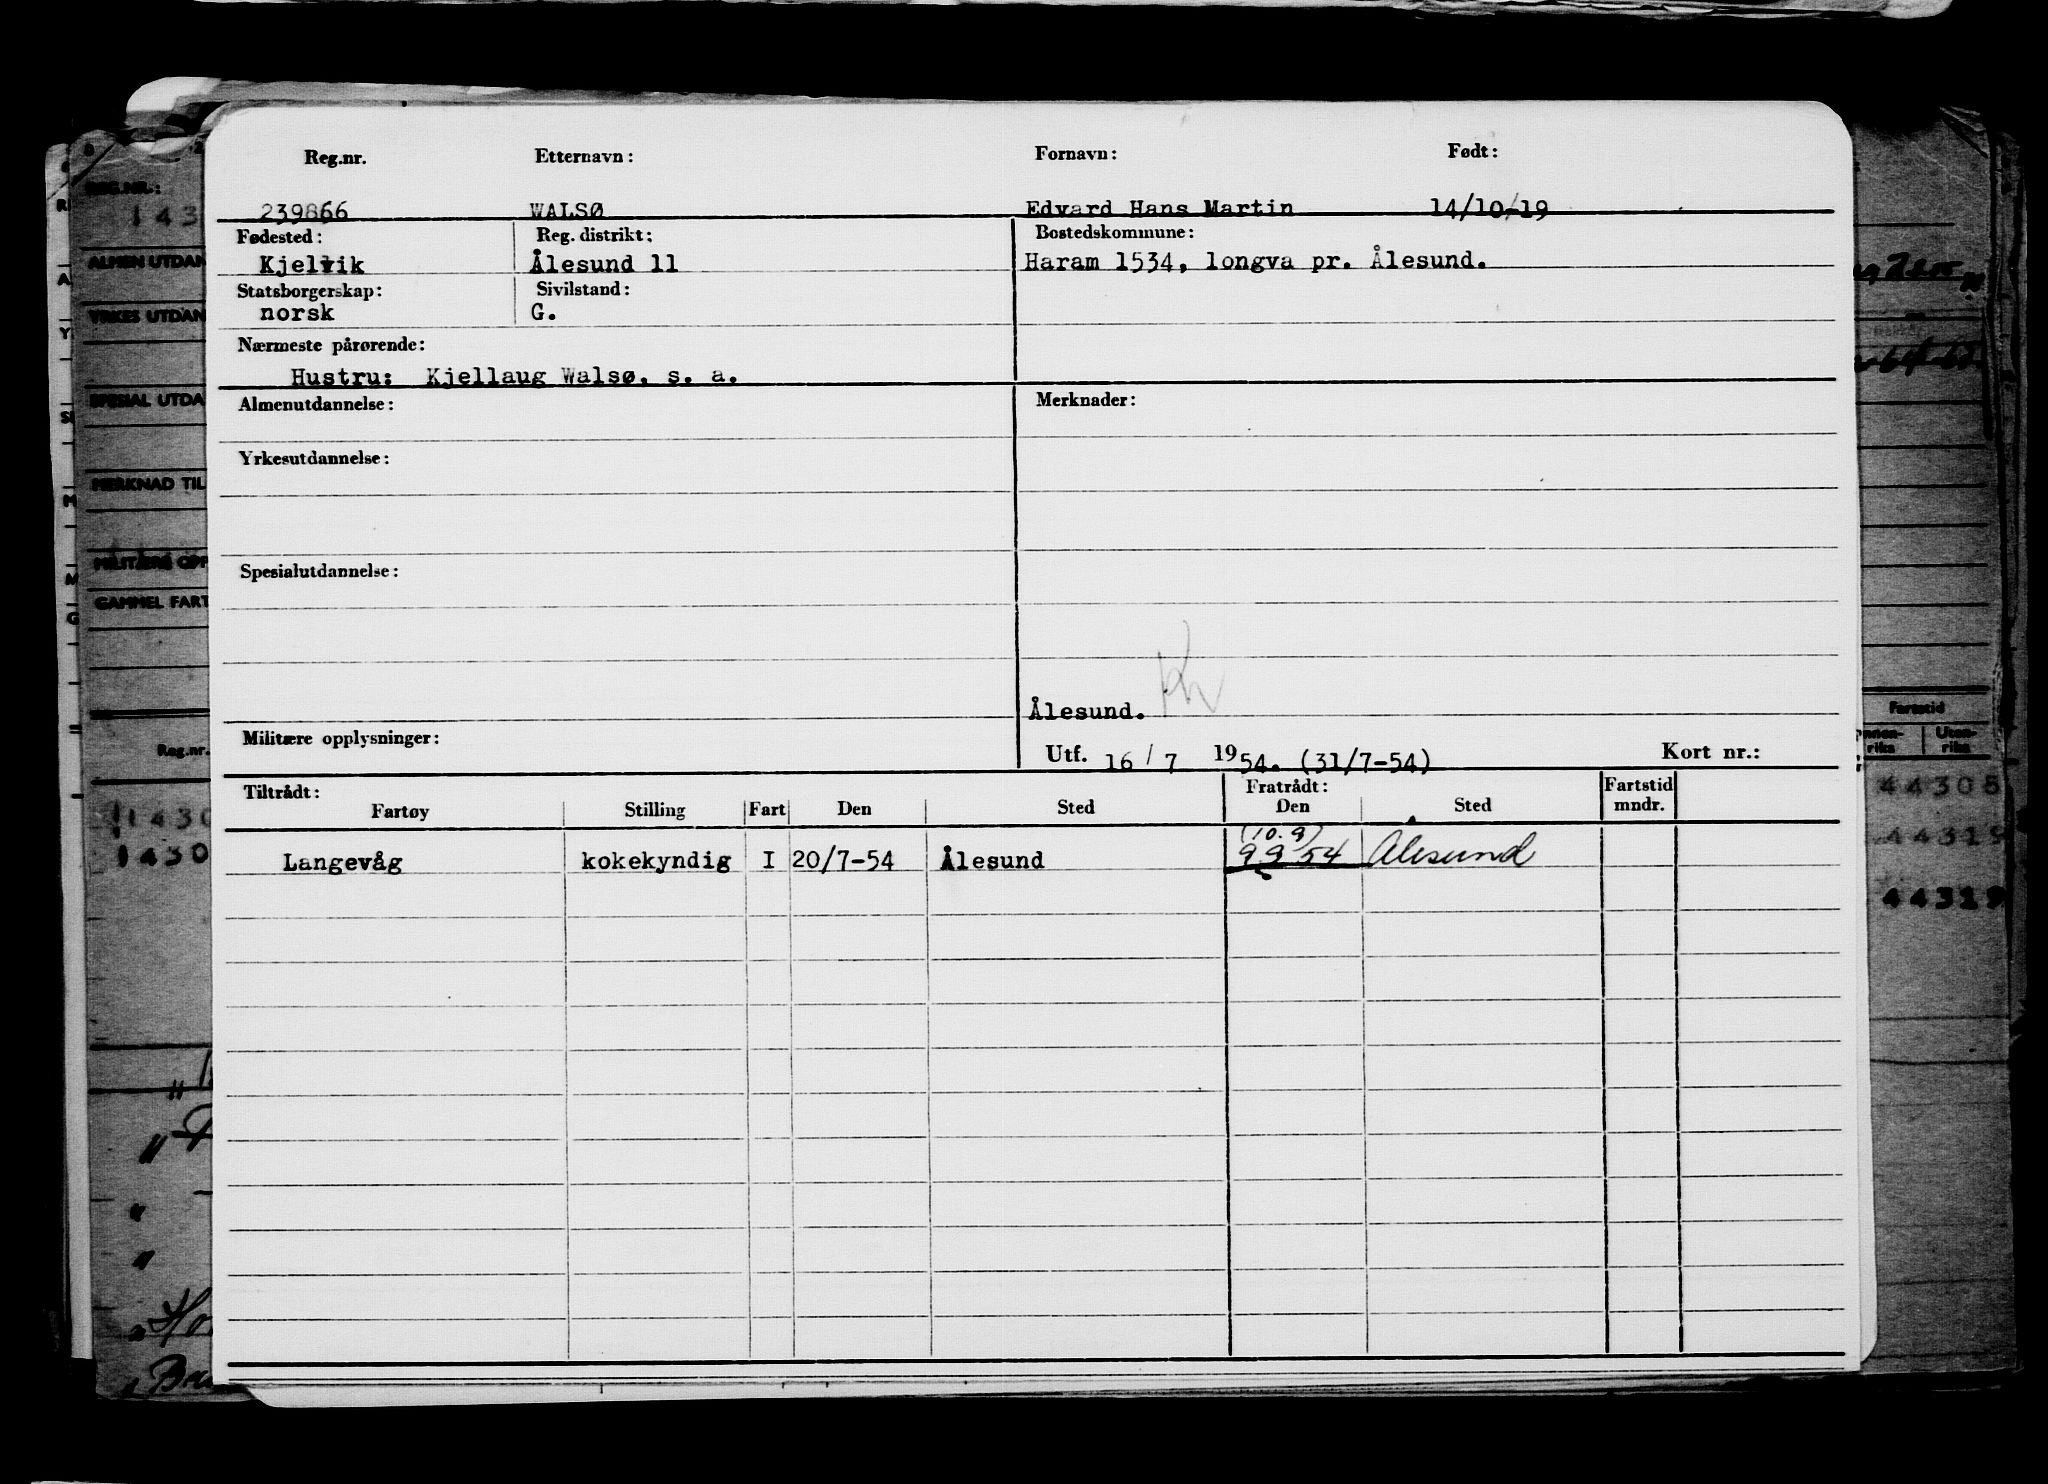 Reg.nr. Etternavn: Fornavn: Født:
239866 WALSØ Edvard Hans Martin 14/10-19
Fødested: Reg. distrikt: Bostedskommune:
Kjelvik Ålesund 11 Haram 1534, longva pr. Ålesund.
Statsborgerskap: Sivilstand:
norsk G.
Nærmeste pårørende:
Hustru: Kjellaug Walsø, s. a.
Almenutdannelse: Merknader:
Yrkesutdannelse:
Spesialutdannelse:
Ålesund.
Militære opplysninger: Utf. 16/7 1954. (31/7-54) Kort nr.:
Tiltrådt: Fratrådt: Fartstid
Fartøy Stilling Fart Den Sted Den Sted mndr.
(10.9)
Langevåg kokekyndig I 20/7-54 Ålesund 9 9 54 Ålesund
REG.NR.:
143
ALMEN UTDAN
YRKES UTDAN
SPESIAL UTDA
MERKNAD TIL
MILITÆRE OPP
GAMMEL FART
Reg.nr.
1430
1430
Fartstid
Innen-riks Uten-riks
44305
44319
44319